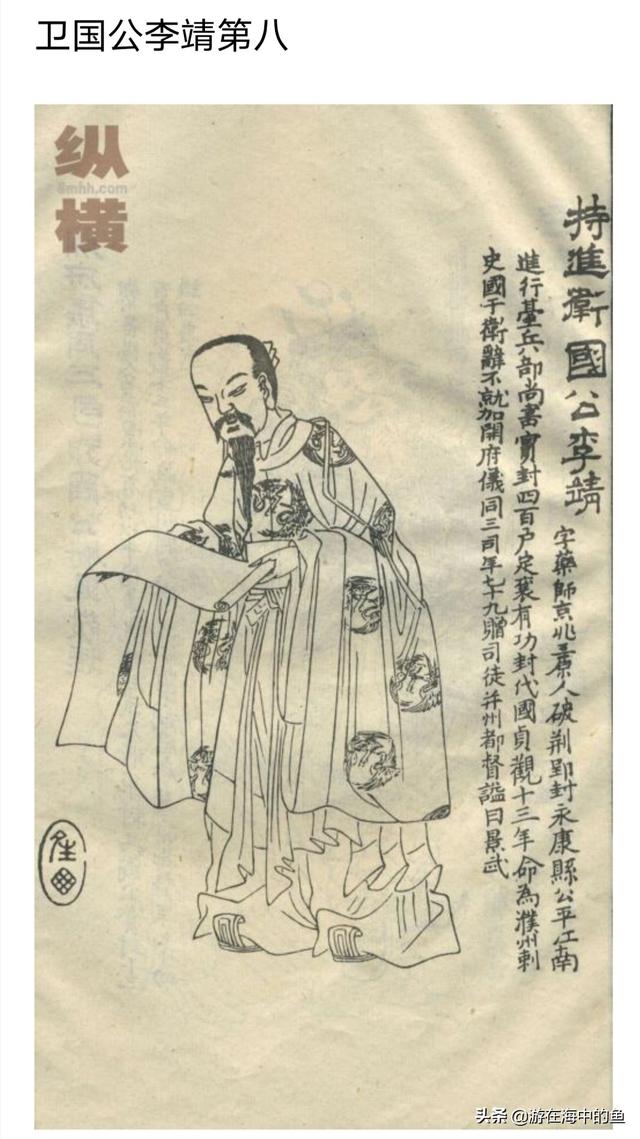 卫国公李靖第八
纵
8mhh.com
横
持進衛國公李靖
字藥師京兆三原人破荆郢封永康縣公平江南
進行臺兵部尚書實封四百户定襄有功封代國貞觀十三年命為濮州刺
史國于衛辭不就加開府儀同三司年七十九贈司徒并州都督謚曰景武
头条 @游在海中的鱼